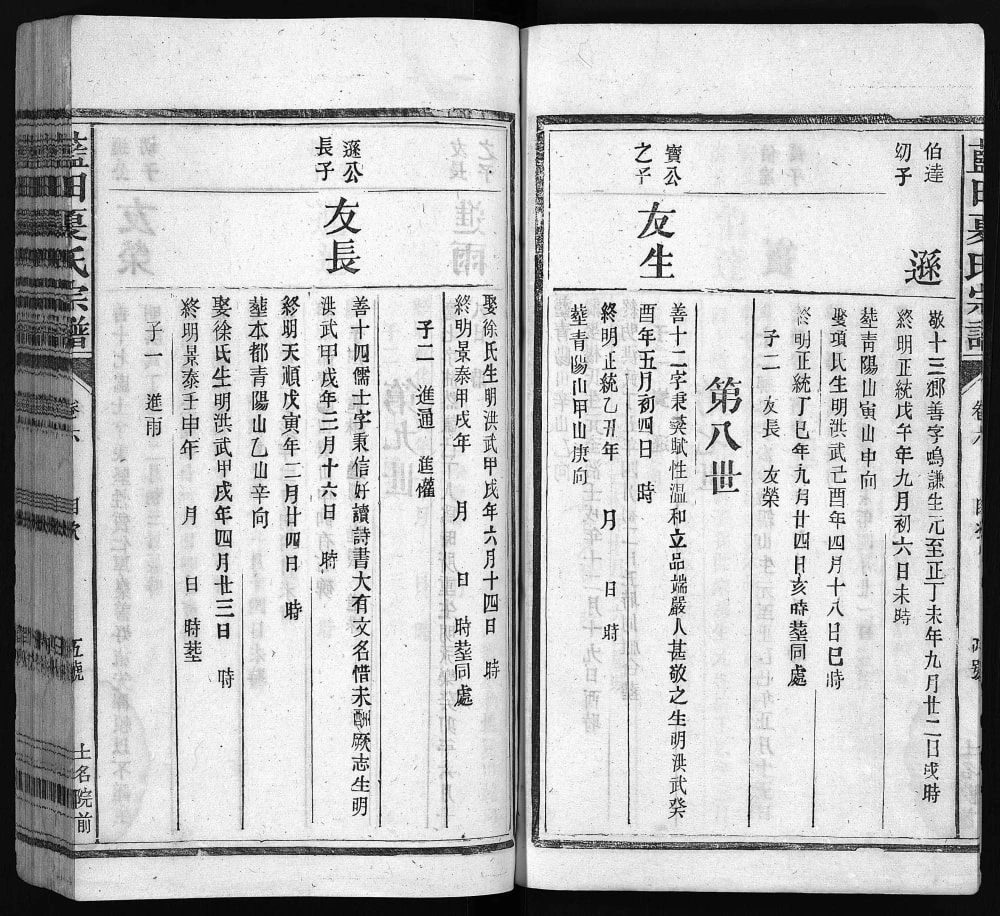 伯達
幼子
遜
敬十三郷善字鳴謙生元至正丁未年九月廿二日戌時
終明正統戊午年九月初六日未時
塟青陽山寅山申向
娶項氏生明洪武己酉年四月十八日巳時
終明正統丁巳年九月廿四日亥時塟同處
子二 友長 友榮
第八世
寶公
之子
友生
善十二字秉奕賦性温和立品端嚴人甚敬之生明洪武癸
酉年五月初四日 時
終明正統乙丑年 月 日 時
塟青陽山甲山庚向
娶徐氏生明洪武甲戌年六月十四日 時
終明景泰甲戌年 月 日 時塟同處
子二 進通 進儘
遜公
長子
友長
善十四儒士字秉信好讀詩書大有文名惜未酬厥志生明
洪武甲戌年二月十六日 時
終明天順戊寅年三月廿四日 時
塟本都青陽山乙山辛向
娶徐氏生明洪武甲戌年四月廿三日 時
終明景泰壬申年 月 日 時塟
子一 進雨
藍田夏氏宗譜
卷六
五號
土名院前